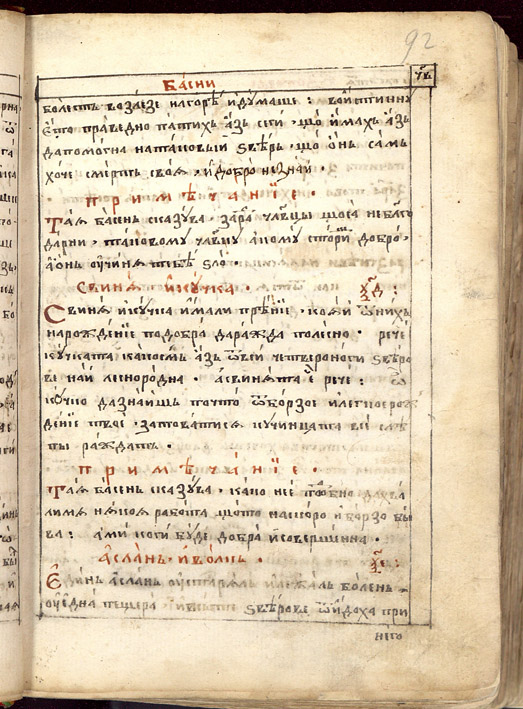 92
Басни
болестъ возлезе на горѣ и думаше: воистинну
ето праведно патихъ азъ сеги, що имахъ азъ
да помогна на таковый ѕвѣръ, що онъ самъ
хоче смерть своя, и добро не знай.
примѣчанїе.
Тая басень сказува, за человецы щоса неблаго
дарни, таковому человеку акому стори добро,
а онъ учиня тебѣ ѕло.
Свиня и кучка.
Свиня и кучка имали прѣнїе, коя ѿ нихъ
на рождение подобра да ражда полесно. рече
кучката како съмъ азъ ѿ вси четвероноги ѕвѣро
ве най леснородна. а свинята рече: ѿ
кучко да знаишъ почто ѿ борзое и легкое рож
дение твое, затова тися кучищата всі слѣ
пы раждатъ.
примѣчанїе.
Тая басень сказува, како не е потребно да хва
лиме някоя работа щото на скоро и борзо бы
ва: ами коги буде добра и совершенна.
Асланъ и волкъ.
Единъ асланъ устарялъ и лежалъ боленъ
у една пещера и всите ѕвѣрове ѿидоха при
него